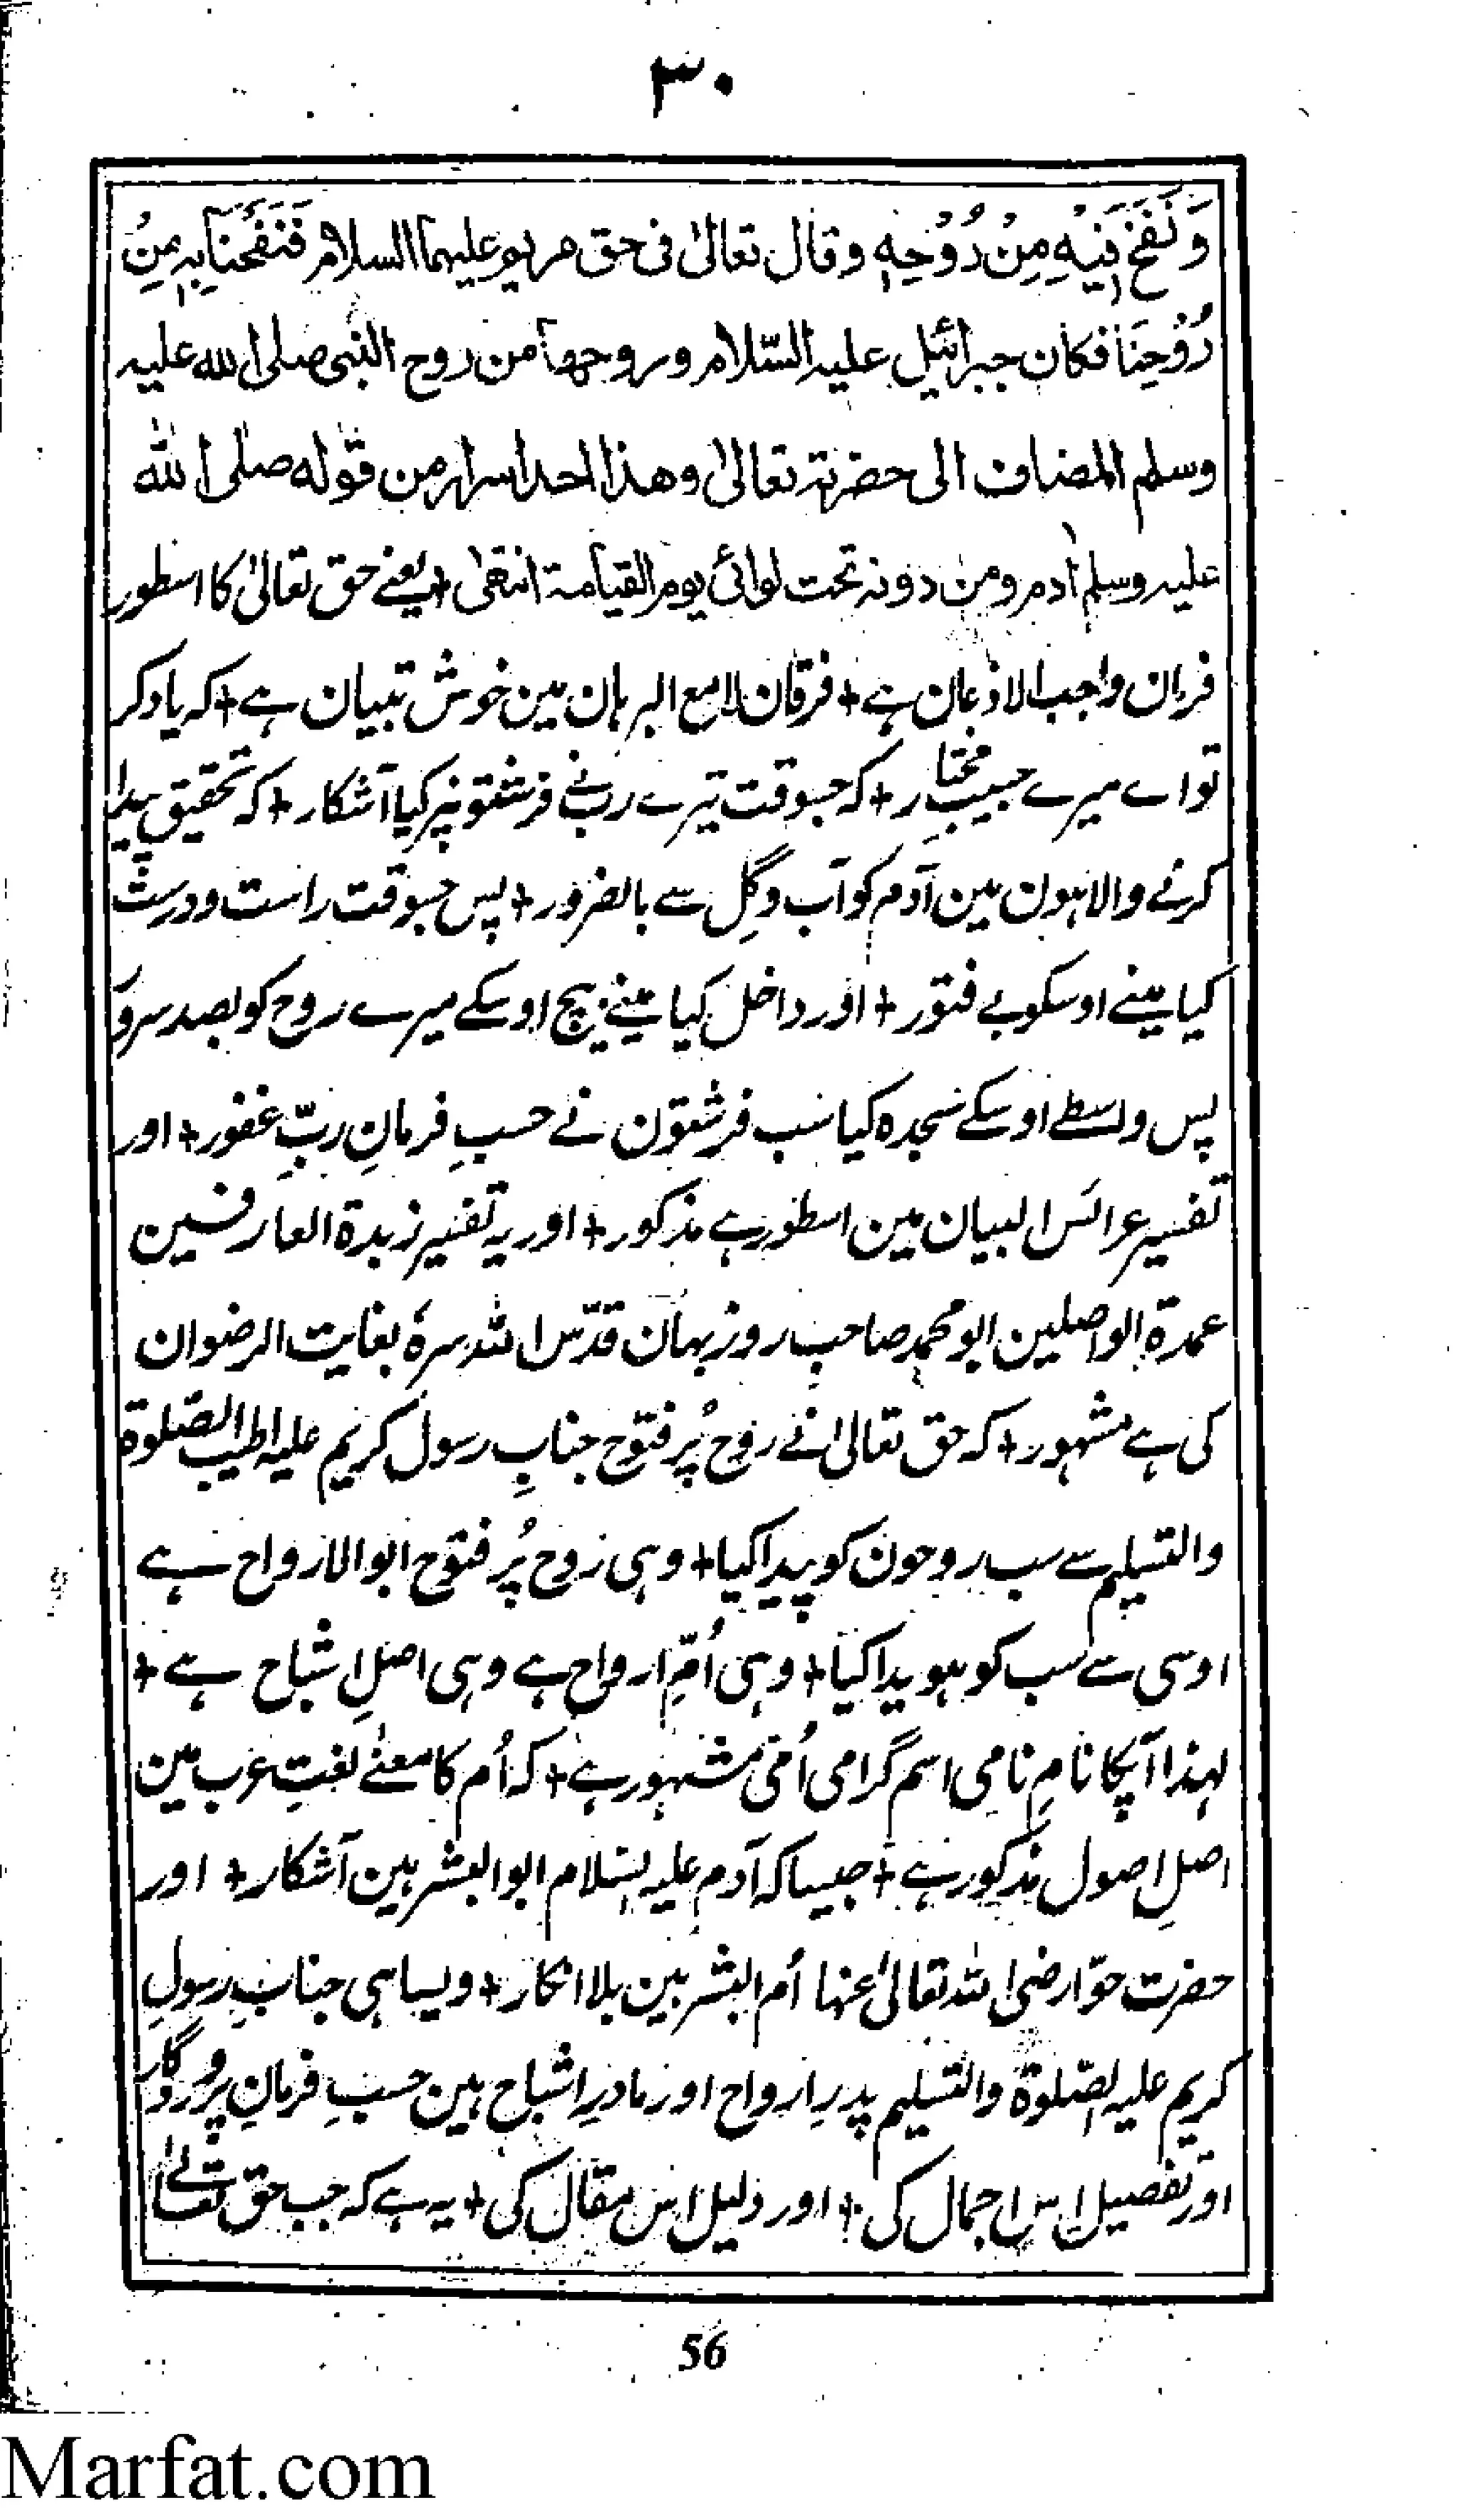 ۳۰
وَنَفَخَ فِیْہِ مِنْ رُوْحِہٖ وقال تعالیٰ فی حق مریم علیہما السلام فَنَفَخْنَا بِہٖ مِنْ
رُوْحِنَا فکان جبرائیل علیہ السّلام وروحھا من روح النبی صلی اللہ علیہ
وسلم المضاف الی حضرتہ تعالیٰ وھذا احد اسرار من قولہ صلی اللہ
علیہ وسلم آدم ومن دونہ تحت لوائی یوم القیامۃ انتھیٰ + یعنے حق تعالیٰ کا اسطور
فرمان واجب الاذعان ہے + فرقان لامع البرہان مین خوش تبیان ہے + کہ یاد کر
تو اے میرے حبیب مختار + کہ جسوقت تیرے رب نے فرشتونپر کیا آشکار + کہ تحقیق پیدا
کرنے والا ہون مین آدم کو آب وگِل سے بالضرور + پس جسوقت راست ودرست
کیا مینے اوسکو بے فتور + اور داخل کیا مینے بیچ اوسکے میرے روح کو بصد سرور
پس واسطے اوسکے سجدہ کیا سب فرشتون نے حسبِ فرمانِ ربِّ غفور + اور
تفسیر عرائس البیان مین اسطور ہے مذکور + اور یہ تفسیر زبدۃ العارفین
عمدۃ الواصلین ابو محمد صاحب روزبہان قدّس اللہ سرہٗ بغایت الرضوان
کی ہے مشہور + کہ حق تعالیٰ نے روح پُر فتوح جنابِ رسول کریم علیہ اطیب الصّلوۃ
والتسلیم سے سب روحون کو پیدا کیا + وہی روح پُر فتوح ابو الارواح ہے
اوسی سے سب کو ہویدا کیا + وہی اُمِّ ارواح ہے وہی اصلِ اشباح ہے +
لہذا آپکا نامِ نامی اسم گرامی اُمّی مشہور ہے + کہ اُم کا معنے لغتِ عرب مین
اصلِ اصول مذکور ہے + جیسا کہ آدم علیہ السّلام ابو البشر ہین آشکار + اور
حضرت حوّا رضی اللہ تعالیٰ عنہا اُم البشر ہین بلا انکار + ویسا ہی جنابِ رسولِ
کریم علیہ الصّلوۃ والتسلیم پدرِ ارواح اور مادرِ اشباح ہین حسبِ فرمانِ پروردگار
اور تفصیل اس اجمال کی + اور دلیل اس مقال کی + یہ ہے کہ جب حق تعالےٰ
56
Marfat.com